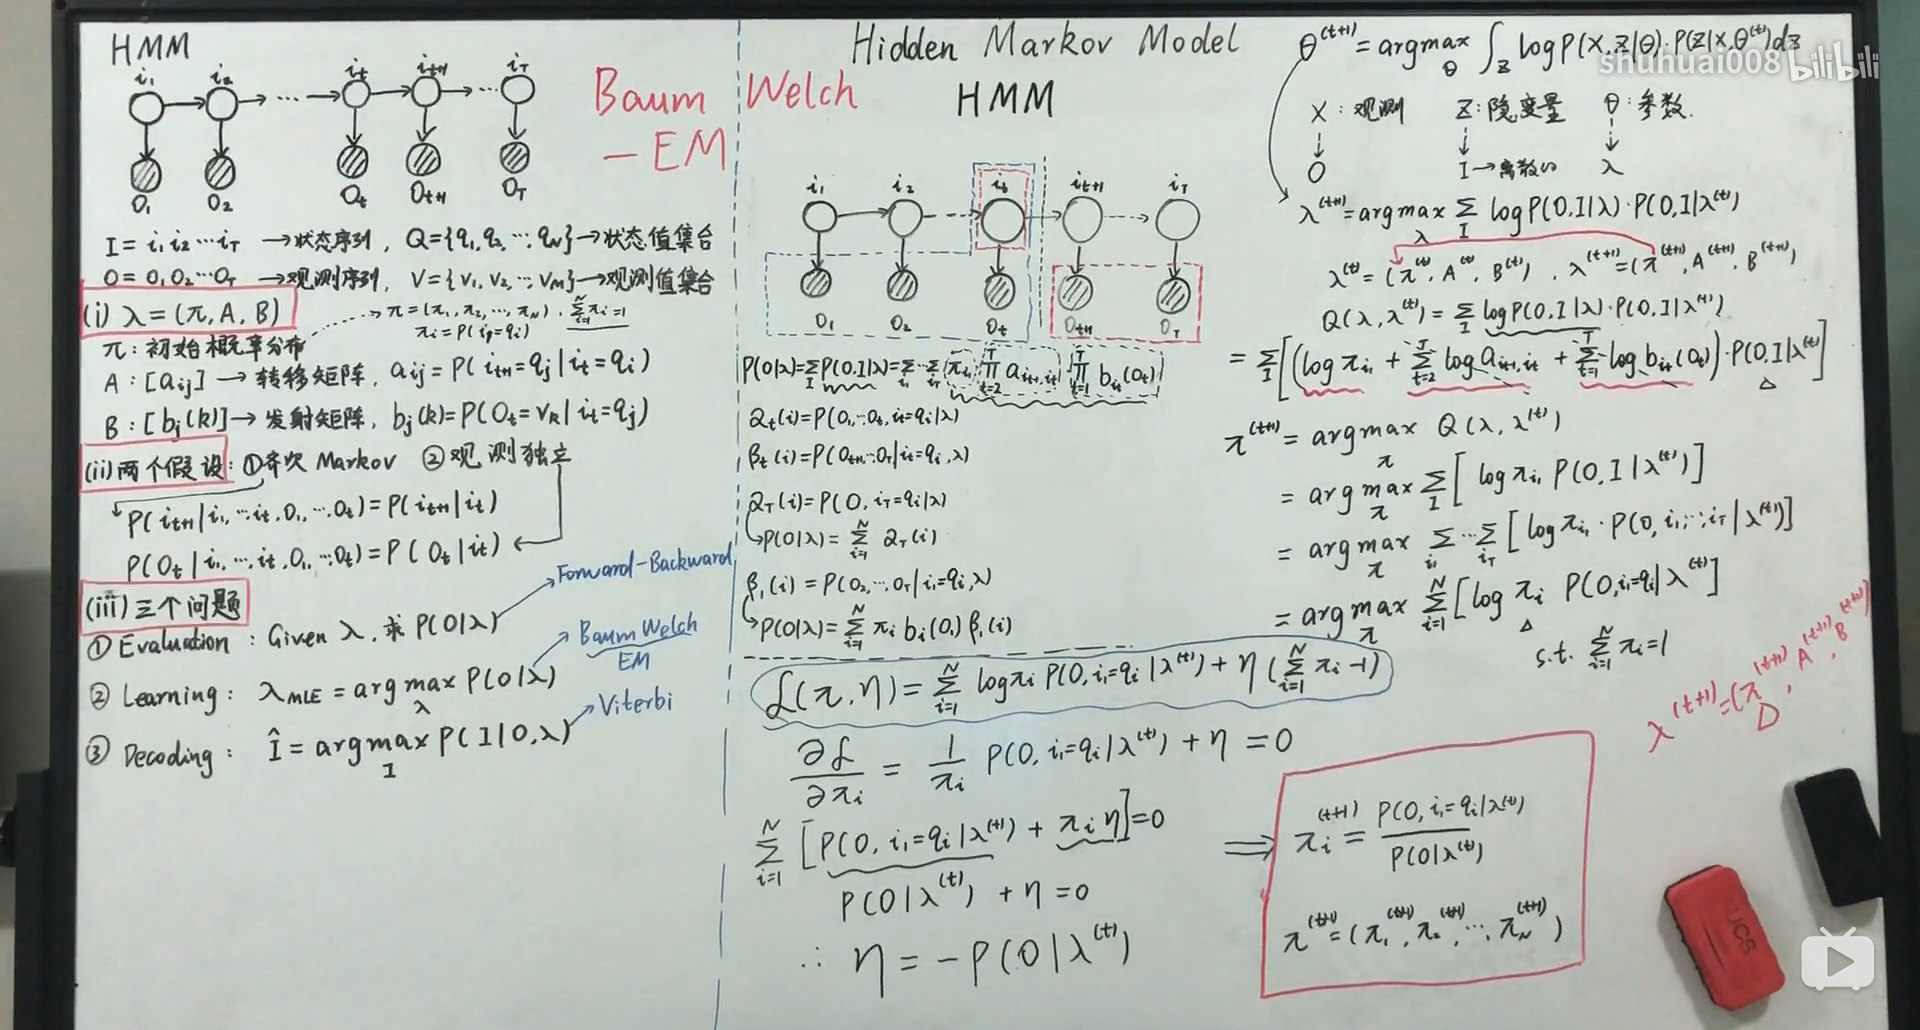 HMM
i₁ i₂ iₜ iₜ₊₁ i_T
... ...
O₁ O₂ Oₜ Oₜ₊₁ O_T
Baum Welch
— EM
I = i₁ i₂ ⋯ i_T → 状态序列, Q = {q₁, q₂, ⋯, q_N} → 状态值集合
O = O₁ O₂ ⋯ O_T → 观测序列, V = {v₁, v₂, ⋯, v_M} → 观测值集合
(i) λ = (π, A, B)
π = (π₁, π₂, ⋯, π_N), Σ_{i=1}^N πᵢ = 1
πᵢ = P(i₁ = qᵢ)
π : 初始概率分布
A : [aᵢⱼ] → 转移矩阵, aᵢⱼ = P(iₜ₊₁ = qⱼ | iₜ = qᵢ)
B : [bⱼ(k)] → 发射矩阵, bⱼ(k) = P(Oₜ = v_k | iₜ = qⱼ)
(ii) 两个假设 : ① 齐次 Markov ② 观测独立
P(iₜ₊₁ | i₁, ⋯ iₜ, O₁, ⋯ Oₜ) = P(iₜ₊₁ | iₜ)
P(Oₜ | i₁, ⋯, iₜ, O₁, ⋯, Oₜ) = P(Oₜ | iₜ)
(iii) 三个问题
Forward-Backward
① Evaluation : Given λ, 求 P(O|λ)
Baum Welch
EM
② Learning : λ_MLE = arg max_λ P(O|λ)
Viterbi
③ Decoding : Î = arg max_I P(I|O, λ)
Hidden Markov Model
HMM
i₁ i₂ iₜ iₜ₊₁ i_T
O₁ O₂ Oₜ Oₜ₊₁ O_T
P(O|λ) = Σ_I P(O, I|λ) = Σ_{i₁} ⋯ Σ_{i_T} π_{i₁} ∏_{t=2}^T a_{iₜ₊₁, iₜ} ∏_{t=1}^T b_{iₜ}(Oₜ)
αₜ(i) = P(O₁, ⋯ Oₜ, iₜ = qᵢ | λ)
βₜ(i) = P(Oₜ₊₁, ⋯ O_T | iₜ = qᵢ, λ)
α_T(i) = P(O, i_T = qᵢ | λ)
→ P(O|λ) = Σ_{i=1}^N α_T(i)
β₁(i) = P(O₂, ⋯, O_T | i₁ = qᵢ, λ)
→ P(O|λ) = Σ_{i=1}^N πᵢ bᵢ(O₁) β₁(i)
ℒ(π, η) = Σ_{i=1}^N log πᵢ P(O, i₁ = qᵢ | λ^(t)) + η (Σ_{i=1}^N πᵢ − 1)
∂ℒ/∂πᵢ = 1/πᵢ P(O, i₁ = qᵢ | λ^(t)) + η = 0
Σ_{i=1}^N [P(O, i₁ = qᵢ | λ^(t)) + πᵢ η] = 0
P(O | λ^(t)) + η = 0
∴ η = − P(O | λ^(t))
θ^(t+1) = arg max_θ ∫_Z log P(X, Z|θ) · P(Z|X, θ^(t)) dz
shuhuai008 bilibili
X : 观测 Z : 隐变量 θ : 参数.
O I → 离散的 λ
λ^(t+1) = arg max_λ Σ_I log P(O, I|λ) · P(O, I|λ^(t))
λ^(t) = (π^(t), A^(t), B^(t)), λ^(t+1) = (π^(t+1), A^(t+1), B^(t+1))
Q(λ, λ^(t)) = Σ_I log P(O, I|λ) · P(O, I|λ^(t))
= Σ_I [(log π_{i₁} + Σ_{t=2}^T log a_{iₜ₊₁, iₜ} + Σ_{t=1}^T log b_{iₜ}(Oₜ)) · P(O, I|λ^(t))]
π^(t+1) = arg max_π Q(λ, λ^(t))
= arg max_π Σ_I [log π_{i₁} P(O, I | λ^(t))]
= arg max_π Σ_{i₁} ⋯ Σ_{i_T} [log π_{i₁} · P(O, i₁, ⋯, i_T | λ^(t))]
= arg max_π Σ_{i=1}^N [log πᵢ P(O, i₁ = qᵢ | λ^(t))]
s.t. Σ_{i=1}^N πᵢ = 1
λ^(t+1) = (π^(t+1), A^(t+1), B^(t+1))
⇒ πᵢ^(t+1) = P(O, i₁ = qᵢ | λ^(t)) / P(O|λ^(t))
π^(t+1) = (π₁^(t+1), π₂^(t+1), ⋯, π_N^(t+1))
UCS